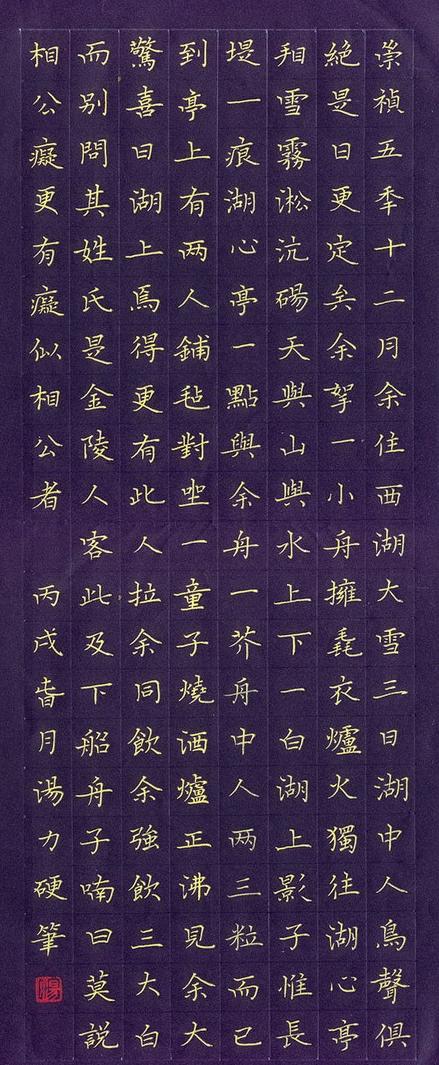 崇禎五秊十二月余住西湖大雪三日湖中人鳥聲俱
絕是日更定矣余拏一小舟擁毳衣爐火獨往湖心亭
看雪霧淞沆碭天與山與水上下一白湖上影子惟長
堤一痕湖心亭一點與余舟一芥舟中人两三粒而已
到亭上有两人鋪毡對坐一童子燒酒爐正沸見余大
驚喜曰湖上焉得更有此人拉余同飲余強飲三大白
而別問其姓氏是金陵人客此及下船舟子喃曰莫說
相公癡更有癡似相公者 丙戌旾月湯力硬筆
湯